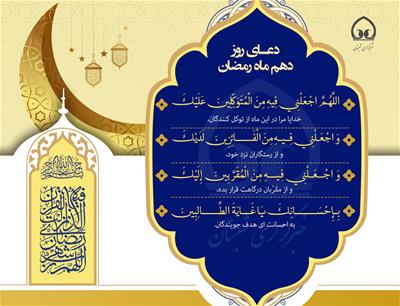 دعای روز
دهم ماه رمضان
اللَّهُمَّ اجْعَلْنِي فِيهِ مِنَ الْمُتَوَكِّلِينَ عَلَيْكَ
خدایا مرا در این ماه از توکل کنندگان،
وَ اجْعَلْنِي فِيهِ مِنَ الْفَائِزِينَ لَدَيْكَ
و از رستگاران نزد خود،
وَ اجْعَلْنِي فِيهِ مِنَ الْمُقَرَّبِينَ إِلَيْكَ
و از مقرّبان درگاهت قرار بده،
بِإِحْسَانِكَ يَا غَايَةَ الطَّالِبِينَ
به احسانت ای هدف جویندگان.